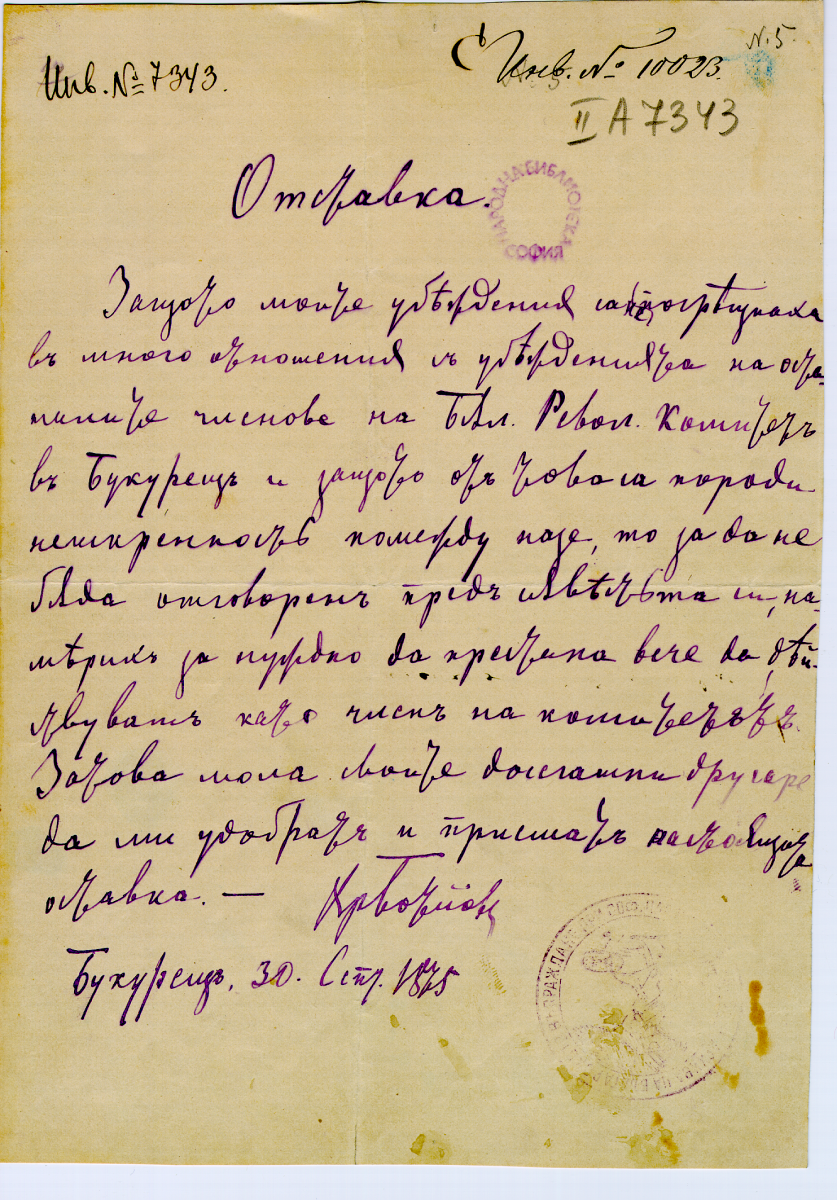 N. 5.
Инв. № 7343.
Инв. № 10023.
II А 7343
Отставка.
НАРОДНА БИБЛИОТЕКА СОФИЯ
Защото моите убѣждения са
въ много отношения съ убѣжденията на оста-
нилите членове на Бѫл. Револ. Комитетъ
въ Букурещъ и защото отъ това са породи
неискренность помежду нази, то за да не
бѫда отговоренъ предъ съвѣстьта си, на-
мѣрихъ за нуждно да престана вече да дѣй-
ствувамъ като членъ на комитетътъ.
Затова моля своите досегашни другаре
да ми удобратъ и приематъ настоящата
оставка. —
Хр Ботйовъ
Букурещъ, 30. Септ. 1875